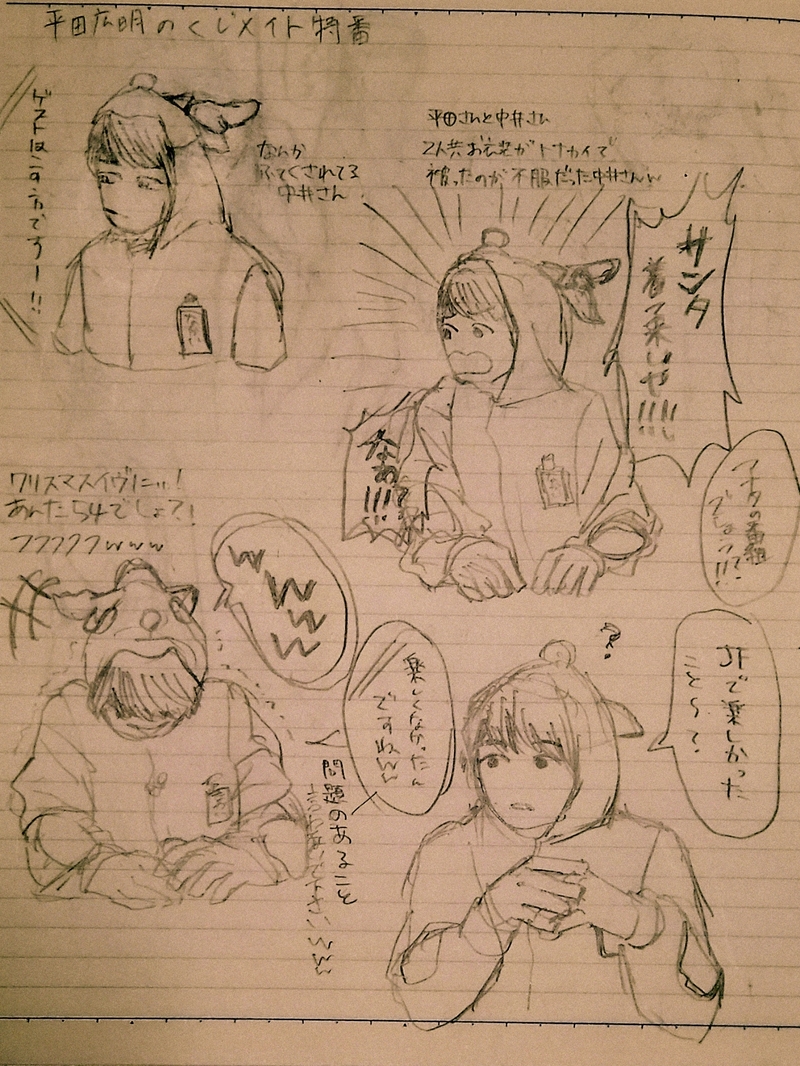 平田広明のくじメイト特番
ゲストはこの方ですー!!
なんか
ふてくされてる
中井さん
平田さんと中井さん
2人共お衣装がトナカイで
被ったのが不服だった中井さんw
サンタ
着て来いや!!!!
なあ!!!?
アナタの番組
でしょう?!!
クリスマスイヴにっ!
あんた54でしょ?!
フフフフフwww
wwww
JFで楽しかった
こと〜?
?
楽しくなかったん
ですねww
問題のあること
言わないで下さいww